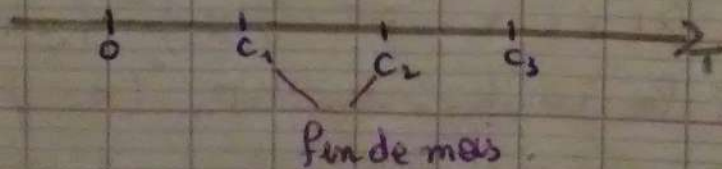 0 C₁ C₂ C₃ T
fin de mois.